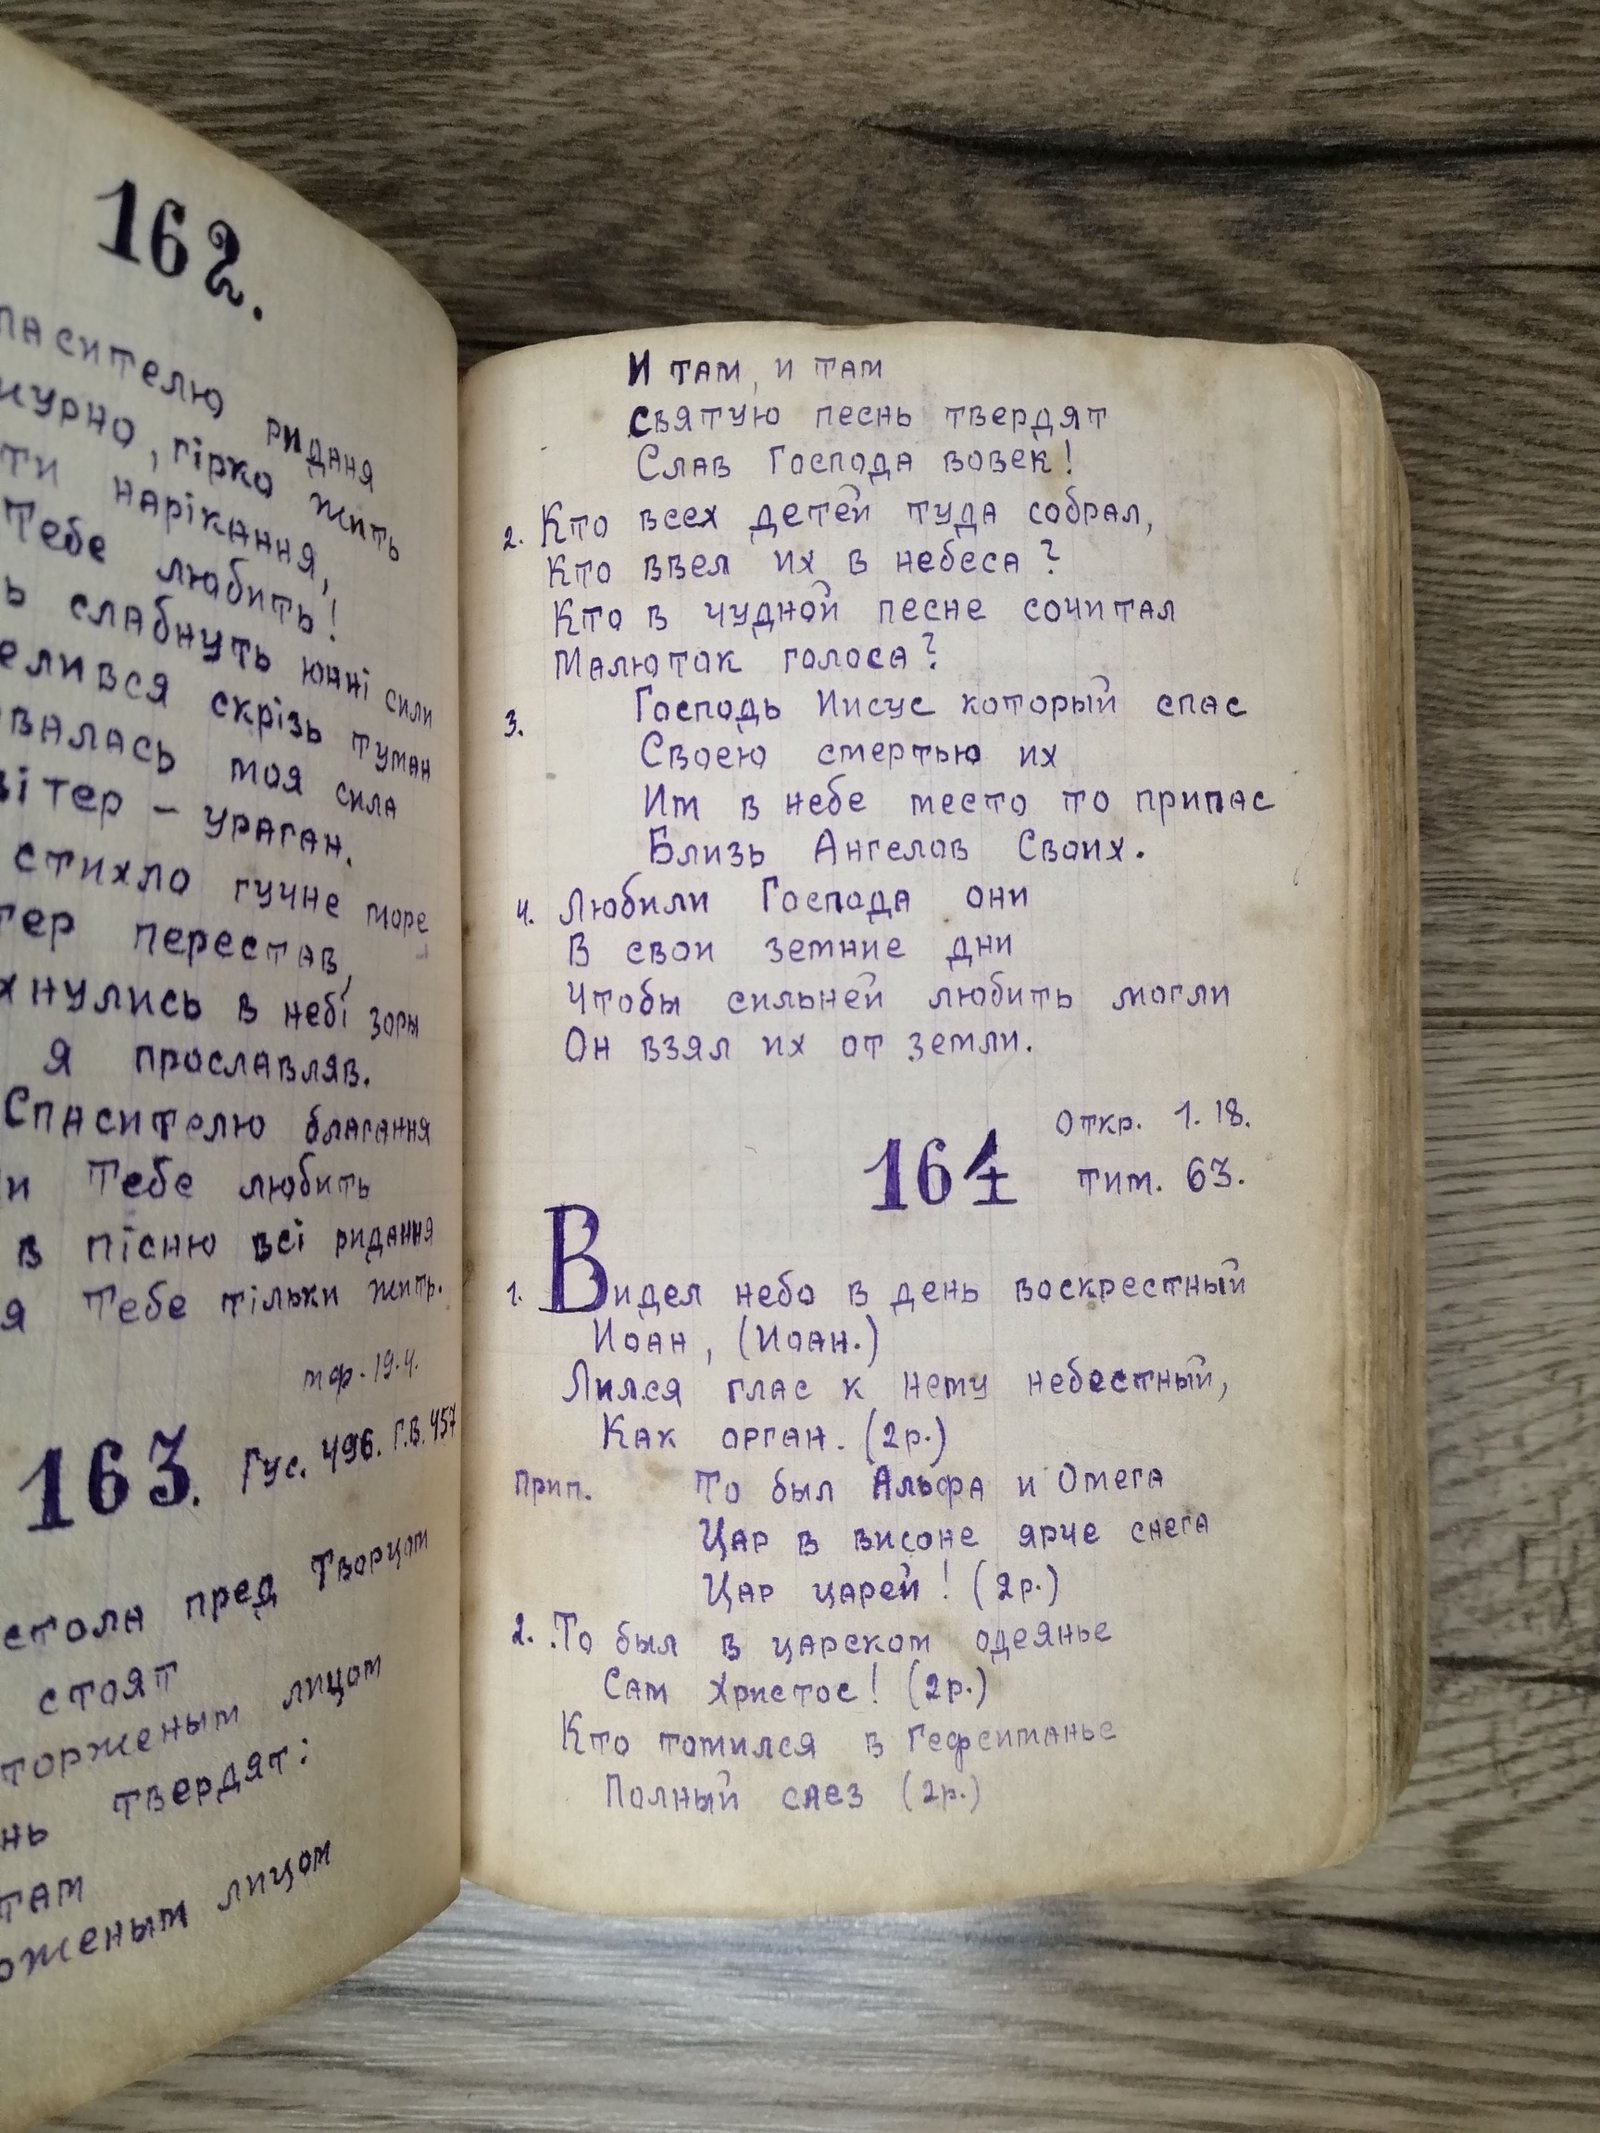 162.
ридання
гірко жить
нарікання,
Тебе любить!
слабнуть юнні сили
скрізь туман
моя сила
вітер – ураган.
стихло гучне море
перестав,
в небі зоры
я прославляв.
Спасителю благання
Тебе любить
в пісню всі ридання
Тебе тільки жить.
мф. 19.4.
163. Гус. 496. Г.В. 457
пред Творцом
стоят
лицом
твердят:
там
лицом
И там, и там
святую песнь твердят
Слав Господа вовек!
2. Кто всех детей туда собрал,
Кто ввел их в небеса?
Кто в чудной песне сочитал
Малюток голоса?
3. Господь Иисус который спас
Своею смертью их
Им в небе место то припас
Близь Ангелов Своих.
4. Любили Господа они
В свои земние дни
Чтобы сильней любить могли
Он взял их от земли.
Откр. 1. 18.
164 тим. 63.
1. Видел небо в день воскрестный
Иоан, (Иоан.)
Лился глас к нему небестный,
Как орган. (2р.)
Прип. То был Альфа и Омега
Цар в висоне ярче снега
Цар царей! (2р.)
2. То был в царском одеянье
Сам Христос! (2р.)
Кто томился в Гефсиманье
Полный слез (2р.)